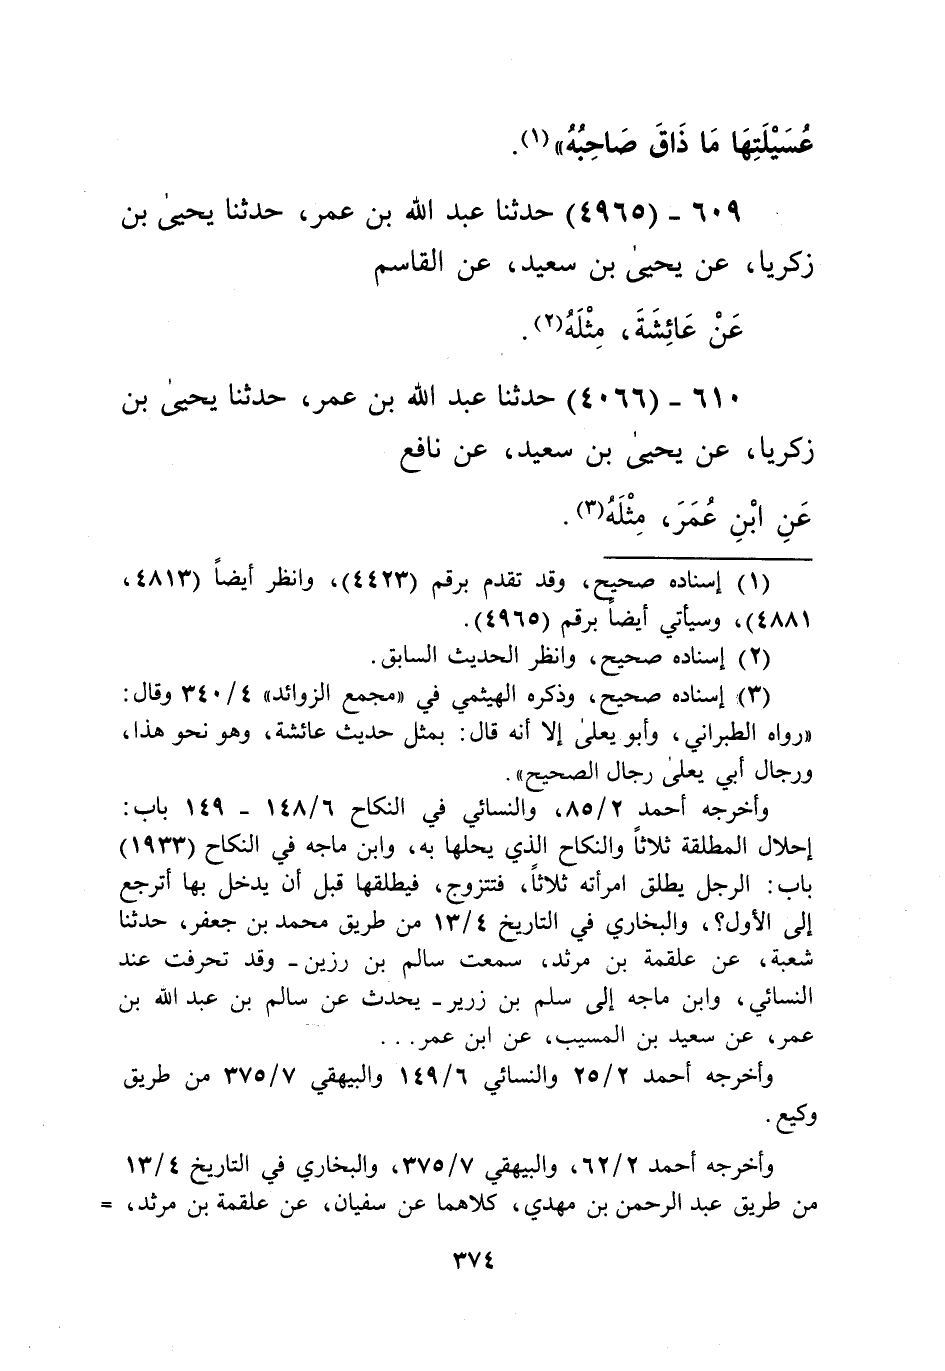 عُسَيْلَتِهَا مَا ذَاقَ صَاحِبُهُ»(١).
٦٠٩ - (٤٩٦٥) حدثنا عبد الله بن عمر، حدثنا يحيىٰ بن
زكريا، عن يحيىٰ بن سعيد، عن القاسم
عَنْ عَائِشَةَ، مِثْلَهُ(٢).
٦١٠ - (٤٠٦٦) حدثنا عبد الله بن عمر، حدثنا يحيىٰ بن
زكريا، عن يحيىٰ بن سعيد، عن نافع
عَنِ ابْنِ عُمَرَ، مِثْلَهُ(٣).
(١) إسناده صحيح، وقد تقدم برقم (٤٤٢٣)، وانظر أيضاً (٤٨١٣،
٤٨٨١)، وسيأتي أيضاً برقم (٤٩٦٥).
(٢) إسناده صحيح، وانظر الحديث السابق.
(٣) إسناده صحيح، وذكره الهيثمي في «مجمع الزوائد» ٣٤٠/٤ وقال:
«رواه الطبراني، وأبو يعلىٰ إلا أنه قال: بمثل حديث عائشة، وهو نحو هذا،
ورجال أبي يعلىٰ رجال الصحيح».
وأخرجه أحمد ٨٥/٢، والنسائي في النكاح ١٤٨/٦ - ١٤٩ باب:
إحلال المطلقة ثلاثاً والنكاح الذي يحلها به، وابن ماجه في النكاح (١٩٣٣)
باب: الرجل يطلق امرأته ثلاثاً، فتتزوج، فيطلقها قبل أن يدخل بها أترجع
إلى الأول؟، والبخاري في التاريخ ١٣/٤ من طريق محمد بن جعفر، حدثنا
شعبة، عن علقمة بن مرثد، سمعت سالم بن رزين - وقد تحرفت عند
النسائي، وابن ماجه إلى سلم بن زرير - يحدث عن سالم بن عبد الله بن
عمر، عن سعيد بن المسيب، عن ابن عمر...
وأخرجه أحمد ٢٥/٢ والنسائي ١٤٩/٦ والبيهقي ٣٧٥/٧ من طريق
وكيع.
وأخرجه أحمد ٦٢/٢، والبيهقي ٣٧٥/٧، والبخاري في التاريخ ١٣/٤
من طريق عبد الرحمن بن مهدي، كلاهما عن سفيان، عن علقمة بن مرثد، =
٣٧٤